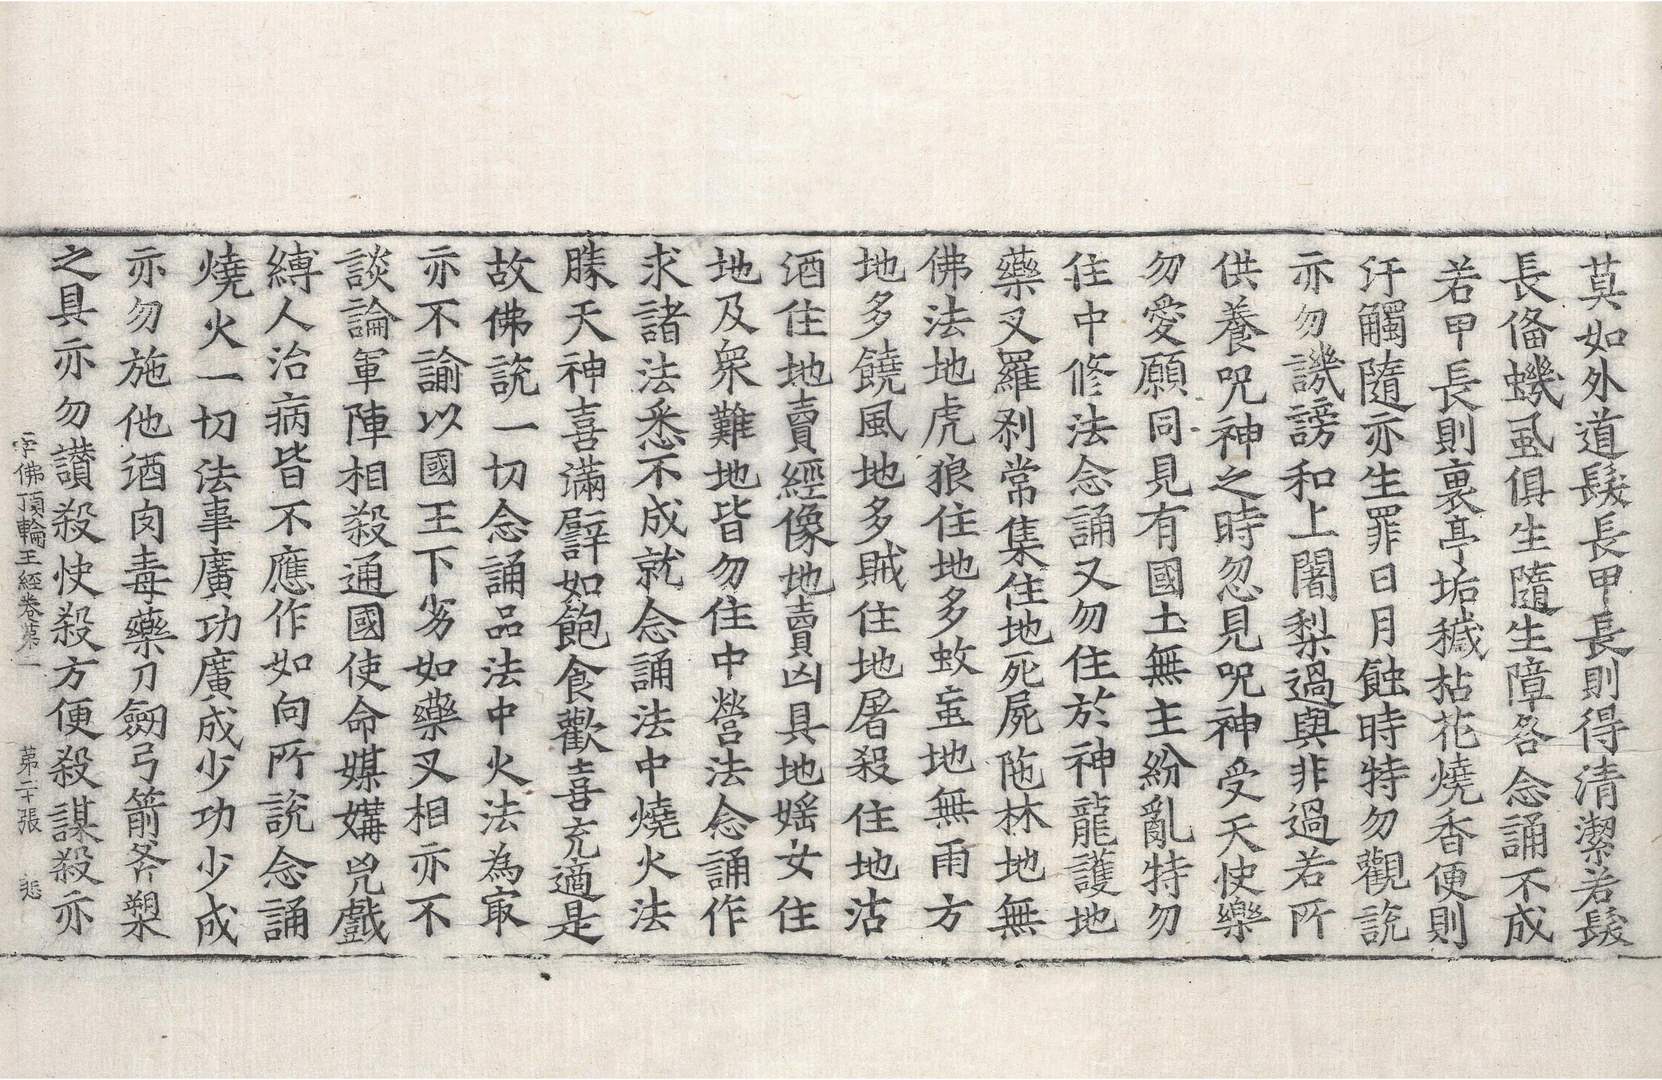 莫如外道髮長甲長則得清潔若髮
長俻蟣虱俱生隨生障咎念誦不成
若甲長則裏亭垢穢拈花燒香便則
汙觸隨亦生罪日月蝕時特勿觀說
亦勿譏謗和上闍梨過與非過若所
供養呪神之時忽見呪神受天快樂
勿愛願同見有國土無主紛亂特勿
住中修法念誦又勿住於神龍護地
藥叉羅刹常集住地死屍陁林地無
佛法地虎狼住地多蚊䖟地無雨方
地多饒風地多賊住地屠殺住地沽
酒住地賣經像地賣凶具地婬女住
地及衆難地皆勿住中營法念誦作
求諸法悉不成就念誦法中燒火法
縢天神喜滿譬如飽食歡喜充適是
故佛說一切念誦品法中火法為㝡
亦不諭以國王下劣如藥叉相亦不
談論軍陣相殺通國使命媒媾兇戲
縛人治病皆不應作如向所說念誦
燒火一切法事廣功廣成少功少成
亦勿施他酒肉毒藥刀劒弓箭斧槊
之具亦勿讃殺快殺方便殺謀殺亦
一字佛頂輪王經卷第一 第二十張 悲